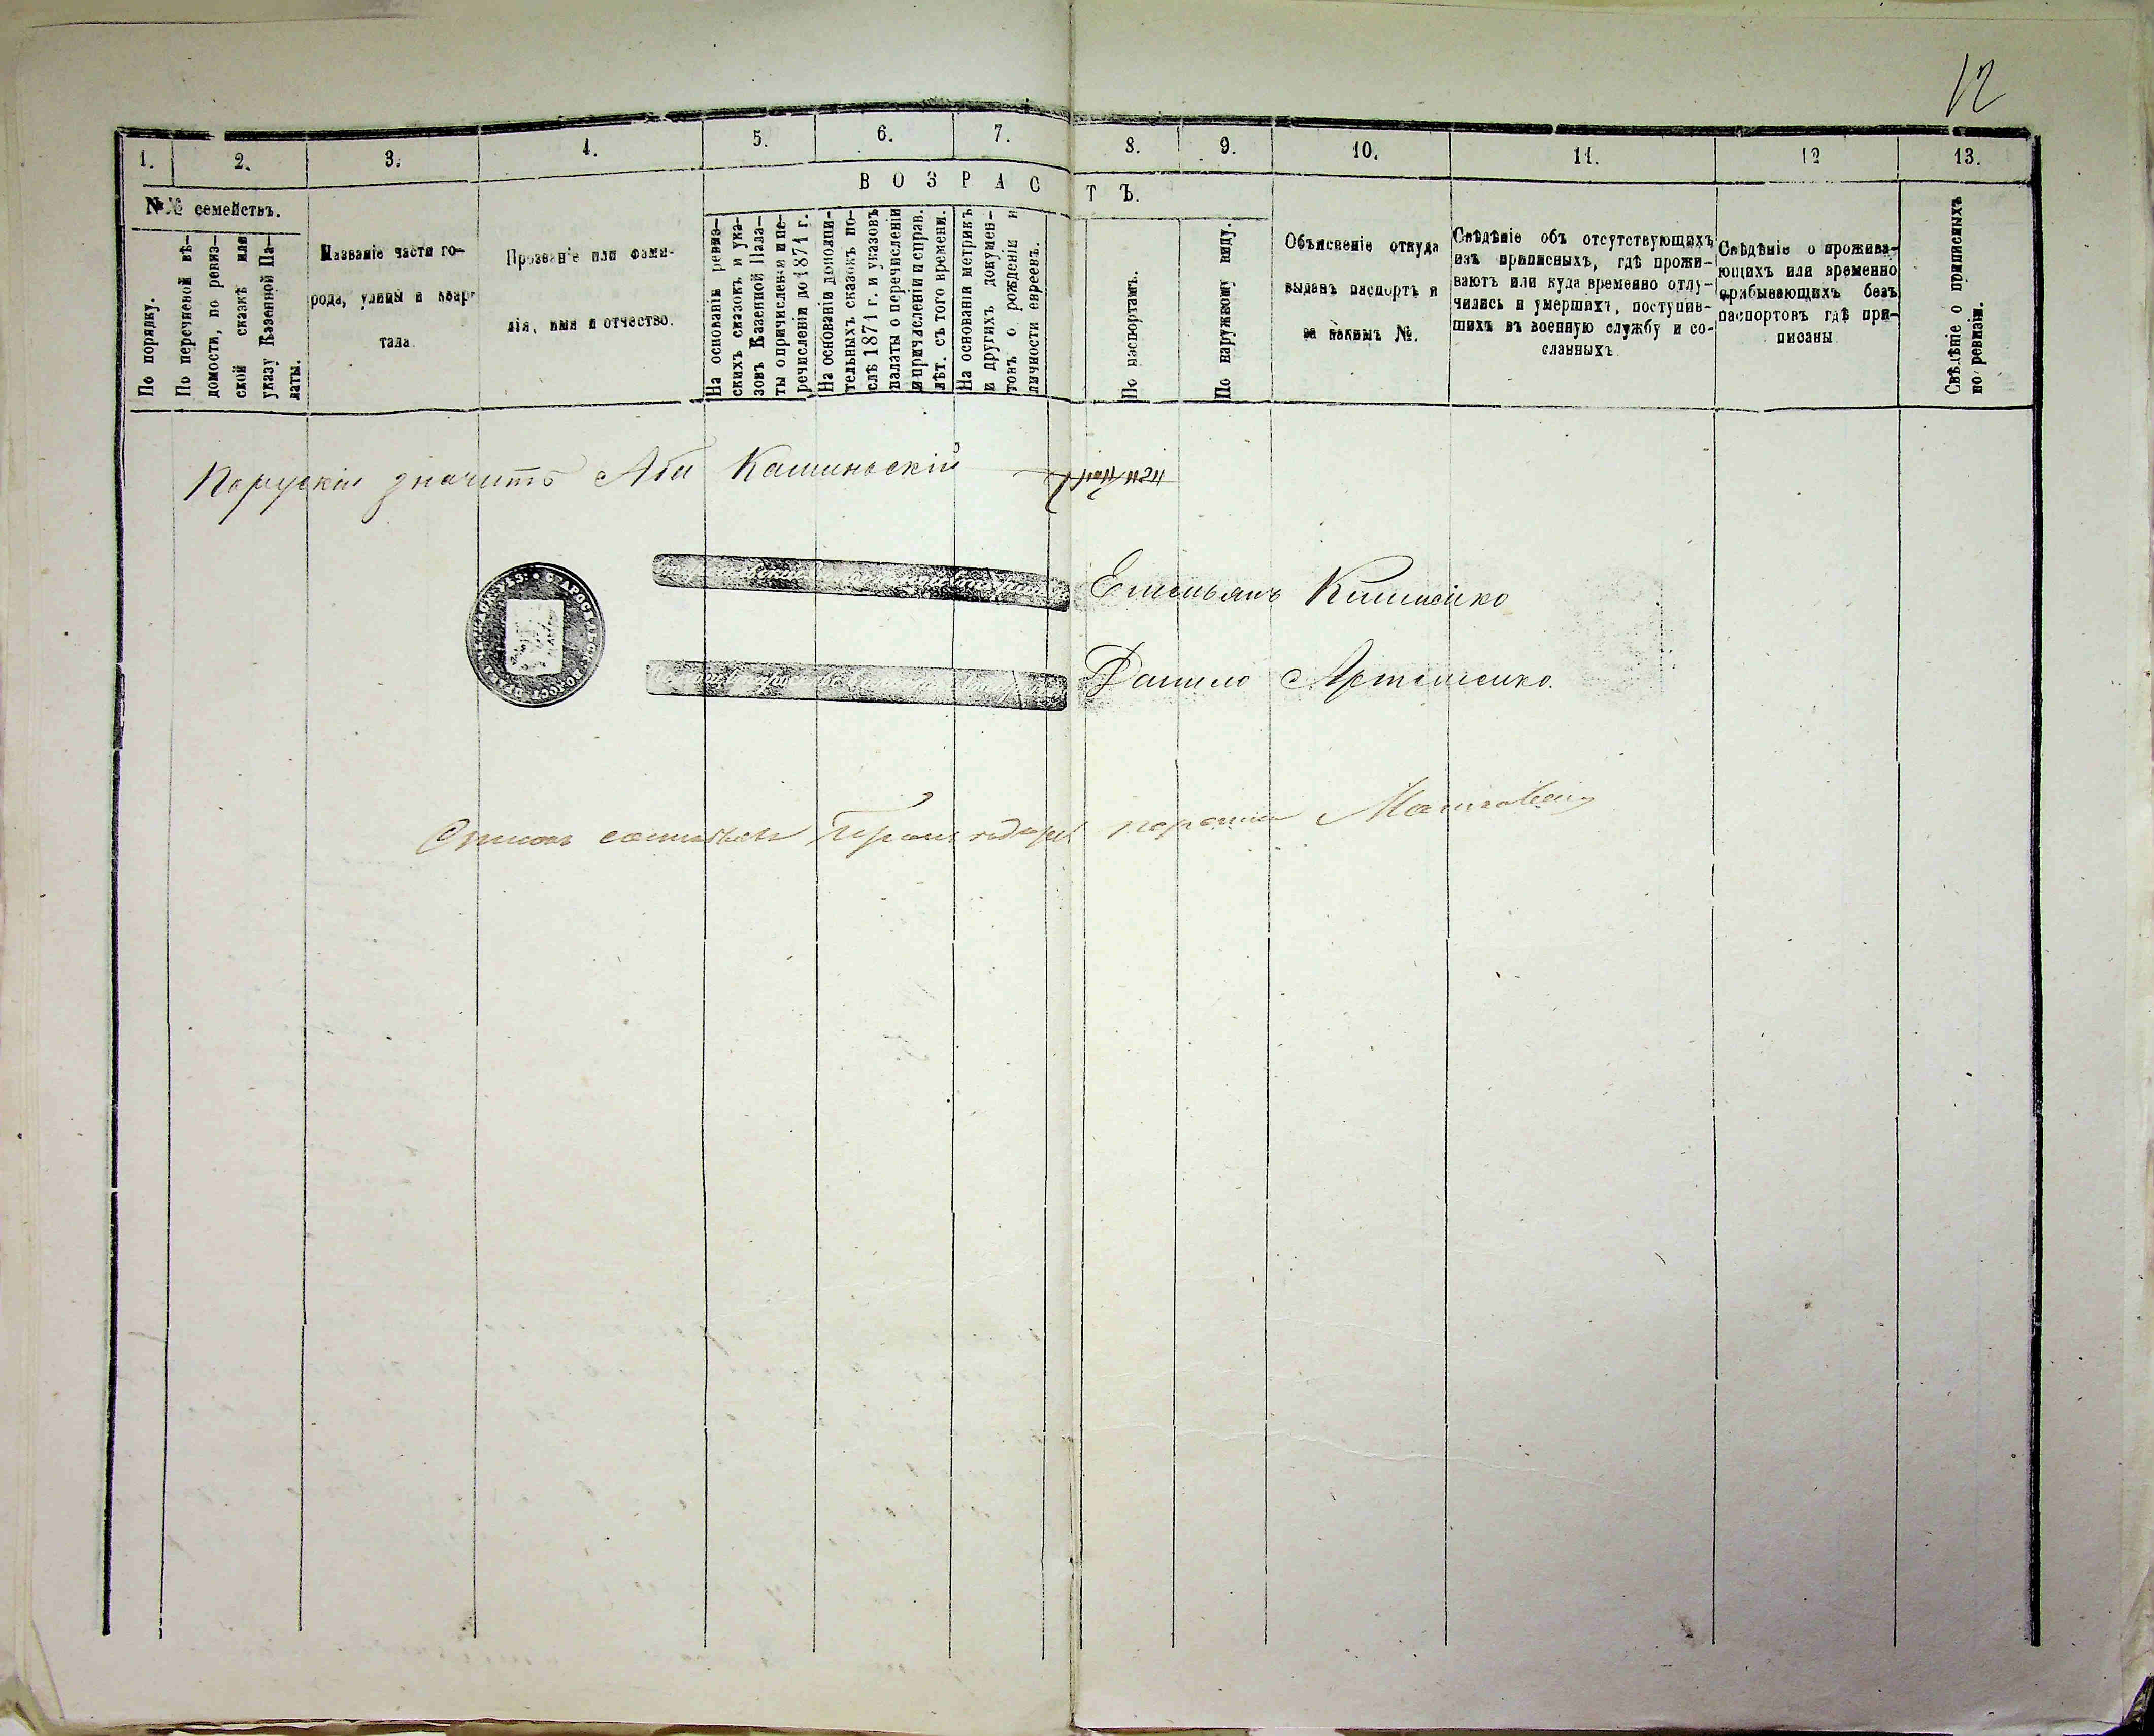 12
1. 2. 3. 4. 5. 6. 7. 8. 9. 10. 11. 12 13.
№№ семействъ.
По порядку.
По перечневой вѣ-
домости, по ревиз-
ской сказкѣ или
указу Казенной Па-
латы.
Названіе части го-
рода, улицы и квар-
тала
Прозваніе или фами-
лія, имя и отчество.
ВОЗРАСТЪ.
На основаніи ревиз-
скихъ сказокъ и ука-
зовъ Казенной Пала-
ты о причисленіи и пе-
речисленіи до 1871 г.
На основаніи дополни-
тельныхъ сказокъ по-
слѣ 1871 г. и указовъ
палаты о перечисленіи
и причисленіи и справ.
лѣт. съ того времени.
На основаніи метрикъ
и другихъ докумен-
товъ о рожденіи и
личности евреевъ.
По паспортамъ.
По наружному виду.
Объясненіе откуда
выданъ паспортъ и
за какимъ №.
Свѣдѣніе объ отсутствующихъ
изъ приписныхъ, гдѣ прожи-
ваютъ или куда временно отлу-
чились и умершихъ, поступив-
шихъ въ военную службу и со-
сланныхъ
Свѣдѣніе о прожива-
ющихъ или временно
прибывающихъ безъ
паспортовъ гдѣ при-
писаны
Свѣдѣніе о приписныхъ
по ревизіи.
Порускіи значитъ Аба Кашинскій
Емельянъ
Данило Артеменко.